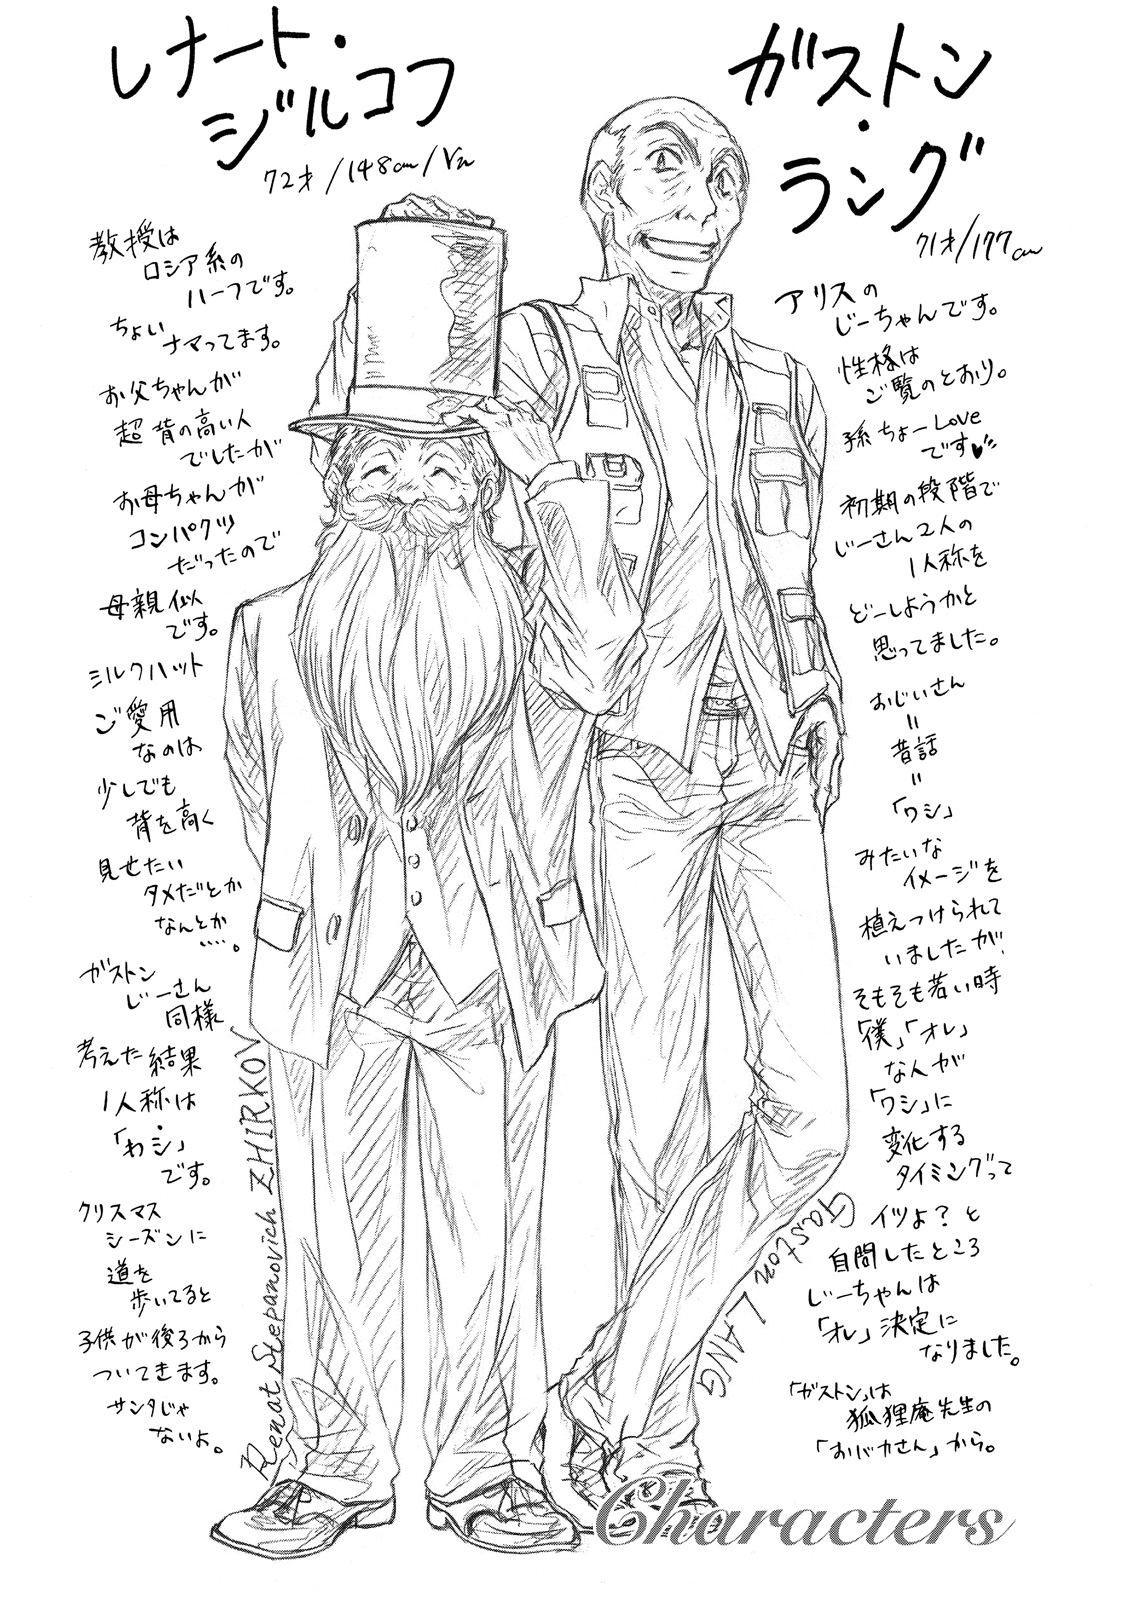 レナート・
ジルコフ
72才/148cm/
教授は
ロシア系の
ハーフです。
ちょい
ナマってます。
お父ちゃんが
超背の高い人
でしたが
お母ちゃんが
コンパクツ
だったので
母親似
です。
シルクハット
ご愛用
なのは
少しでも
背を高く
見せたい
タメだとか
なんとか
‥‥。
ガストン
じーさん
同様
考えた結果
1人称は
「わシ」
です。
クリスマス
シーズンに
道を
歩いてると
子供が後ろから
ついてきます。
サンタじゃ
ないよ。
Renat Stepanovich ZHIRKOV
ガストン
・
ラング
71才/177cm
アリスの
じーちゃんです。
性格は
ご覧のとおり。
孫ちょーLove
です♥
初期の段階で
じーさん2人の
1人称を
どーしようかと
思ってました。
おじいさん
=
昔話
=
「ワシ」
みたいな
イメージを
植えつけられて
いましたが、
そもそも若い時
「僕」「オレ」
な人が
「ワシ」に
変化する
タイミングって
イツよ?と
自問したところ
じーちゃんは
「オレ」決定に
なりました。
「ガストン」は
狐狸庵先生の
「おバカさん」から。
Gaston LANG
Characters